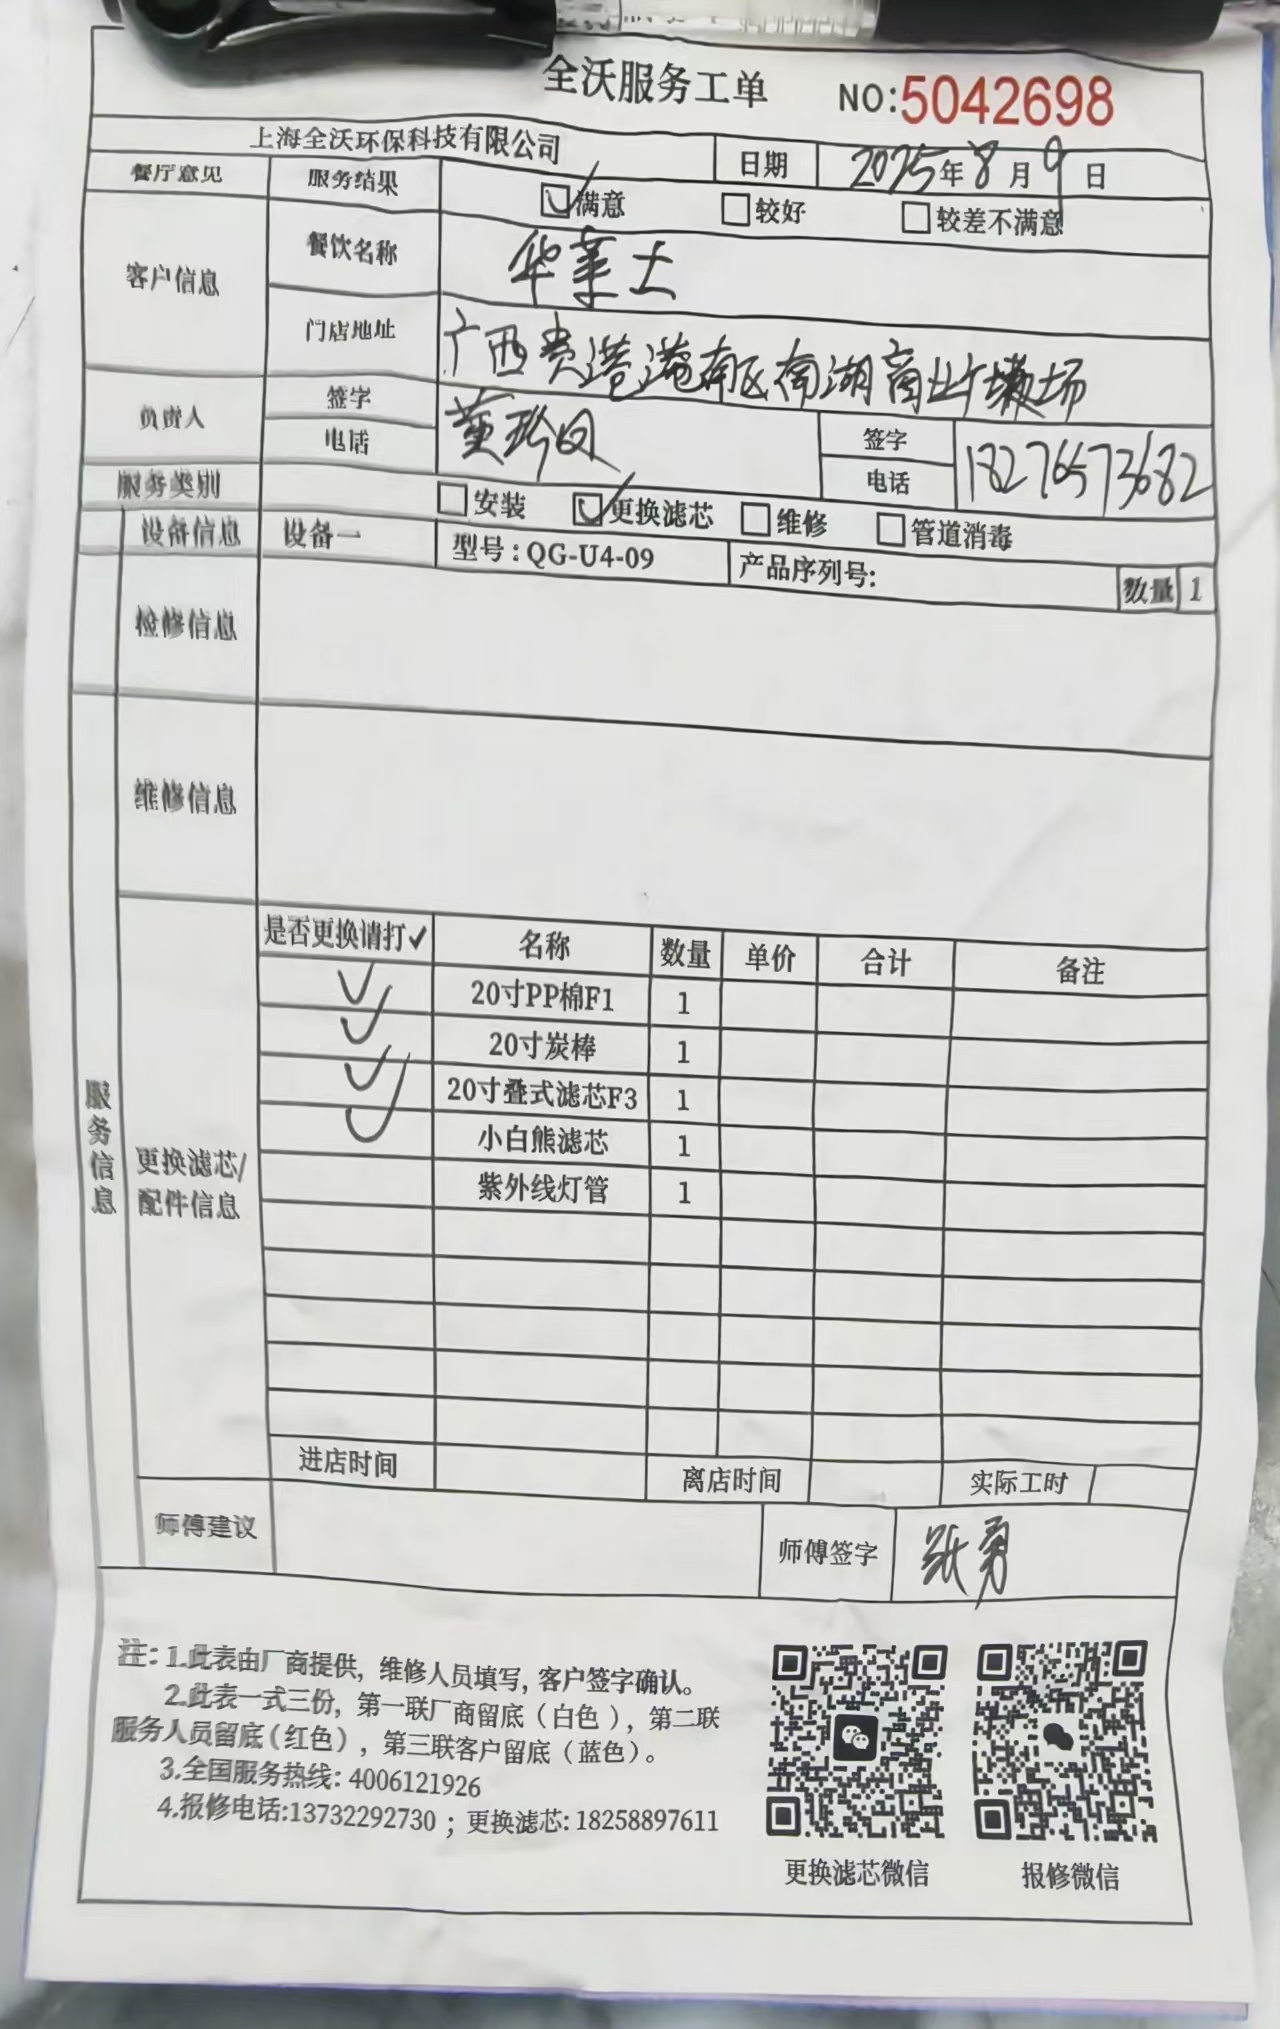 全沃服务工单 NO:5042698
上海全沃环保科技有限公司 日期 2025年8月9日
餐厅意见 服务结果 ☑满意 □较好 □较差不满意
客户信息 餐饮名称 华莱士
门店地址 广西贵港港南区南湖商业广场
负责人 签字 签字
电话 电话 18276573682
服务类别 □安装 ☑更换滤芯 □维修 □管道消毒
设备信息 设备一 型号:QG-U4-09 产品序列号: 数量 1
检修信息
维修信息
服务信息
更换滤芯/
配件信息
是否更换请打✓ 名称 数量 单价 合计 备注
✓ 20寸PP棉F1 1
✓ 20寸炭棒 1
✓ 20寸叠式滤芯F3 1
✓ 小白熊滤芯 1
紫外线灯管 1
进店时间 离店时间 实际工时
师傅建议 师傅签字 张勇
注:1.此表由厂商提供,维修人员填写,客户签字确认。
2.此表一式三份,第一联厂商留底(白色),第二联
服务人员留底(红色),第三联客户留底(蓝色)。
3.全国服务热线:4006121926
4.报修电话:13732292730;更换滤芯:18258897611
更换滤芯微信 报修微信